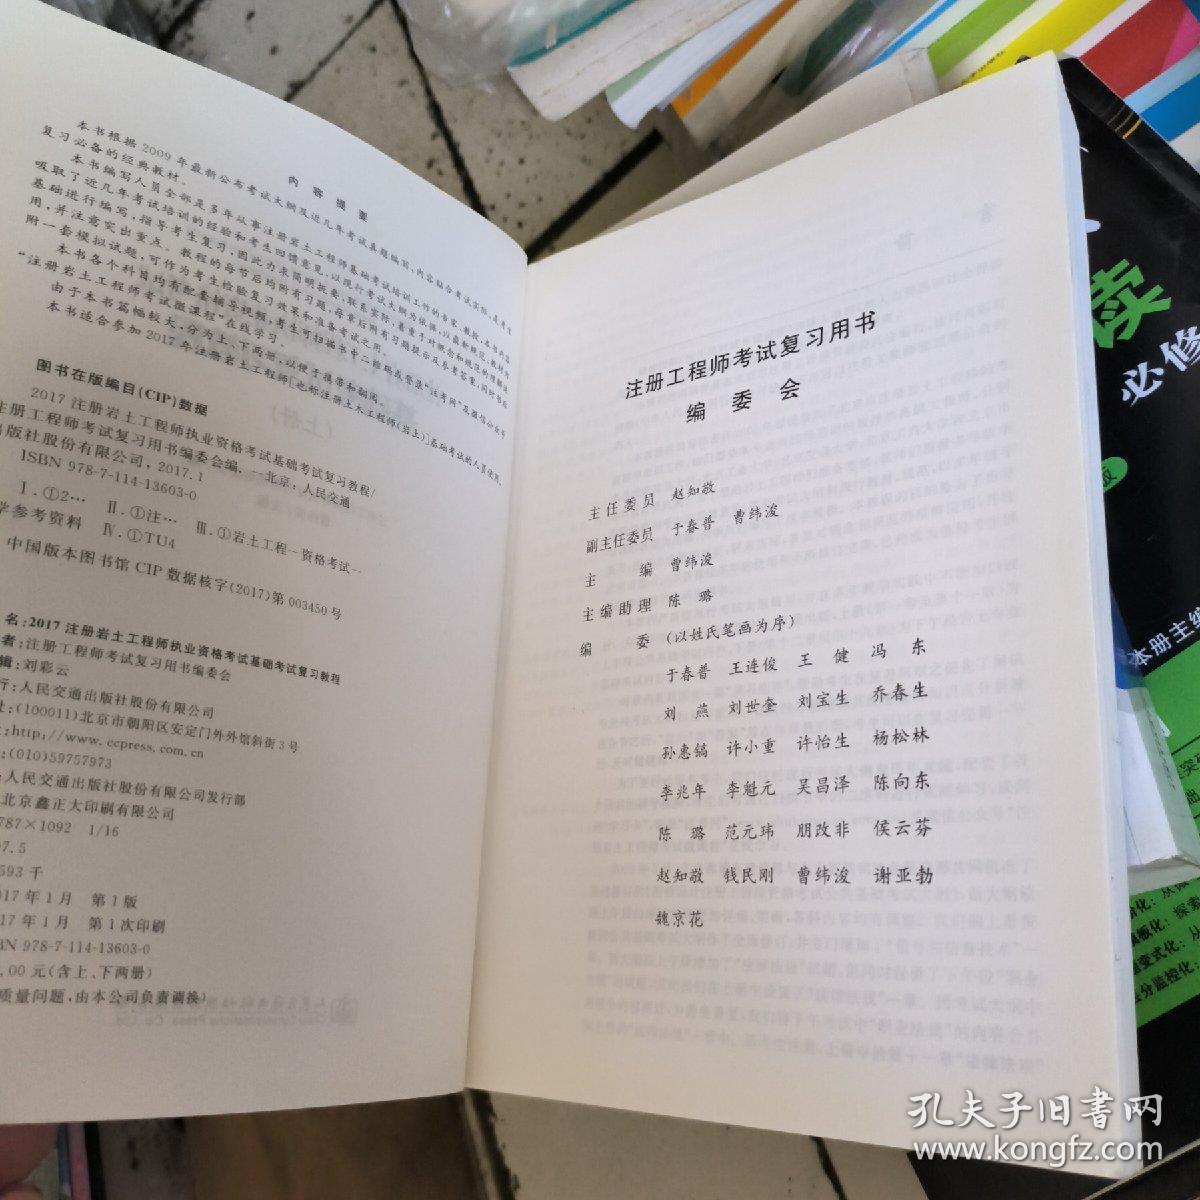 内 容 提 要
本书根据 2009 年最新公布考试大纲及近几年考试真题编写,内容贴合考试实际,是考生
复习必备的经典教材。
本书编写人员全部是多年从事注册岩土工程师基础考试培训工作的专家、教授,本书内容
吸取了近几年考试培训的经验和考生回馈意见,以现行考试大纲为依据,以最新规范、教材为
基础进行编写,指导考生复习,因此力求简明扼要,联系实际,着重于对概念和规范的理解运
用,并注意突出重点。教程的每节后均附有习题,每章后附有习题提示及参考答案,同时书后
附一套模拟试题,可作为考生检验复习效果和准备考试之用。
本书各个科目均有配套辅导视频,考生可扫描书中二维码或登录“注考网”及微信公众号
“注册岩土工程师考试微课程”在线学习。
由于本书篇幅较大,分为上、下两册,以便于携带和翻阅。
本书适合参加 2017 年注册岩土工程师[也称注册土木工程师(岩土)]基础考试的人员使用。
图书在版编目(CIP)数据
2017 注册岩土工程师执业资格考试基础考试复习教程/
注册工程师考试复习用书编委会编. —北京:人民交通
出版社股份有限公司,2017.1
ISBN 978-7-114-13603-0
Ⅰ.①2… Ⅱ.①注… Ⅲ.①岩土工程—资格考试—
学参考资料 Ⅳ.①TU4
中国版本图书馆 CIP 数据核字(2017)第 003450 号
名:2017 注册岩土工程师执业资格考试基础考试复习教程
者:注册工程师考试复习用书编委会
辑:刘彩云
行:人民交通出版社股份有限公司
址:(100011)北京市朝阳区安定门外外馆斜街 3 号
:http://www.ccpress.com.cn
:(010)59757973
:人民交通出版社股份有限公司发行部
北京鑫正大印刷有限公司
787×1092 1/16
7.5
593 千
17 年 1 月 第 1 版
17 年 1 月 第 1 次印刷
N 978-7-114-13603-0
.00 元(含上、下两册)
质量问题,由本公司负责调换)
注册工程师考试复习用书
编 委 会
主任委员 赵知敬
副主任委员 于春普 曹纬浚
主 编 曹纬浚
主编助理 陈 璐
编 委 (以姓氏笔画为序)
于春普 王连俊 王 健 冯 东
刘 燕 刘世奎 刘宝生 乔春生
孙惠镐 许小重 许怡生 杨松林
李兆年 李魁元 吴昌泽 陈向东
陈 璐 范元玮 朋改非 侯云芬
赵知敬 钱民刚 曹纬浚 谢亚勃
魏京花
读
必修
版
本册主编
孔夫子旧书网
www.kongfz.com